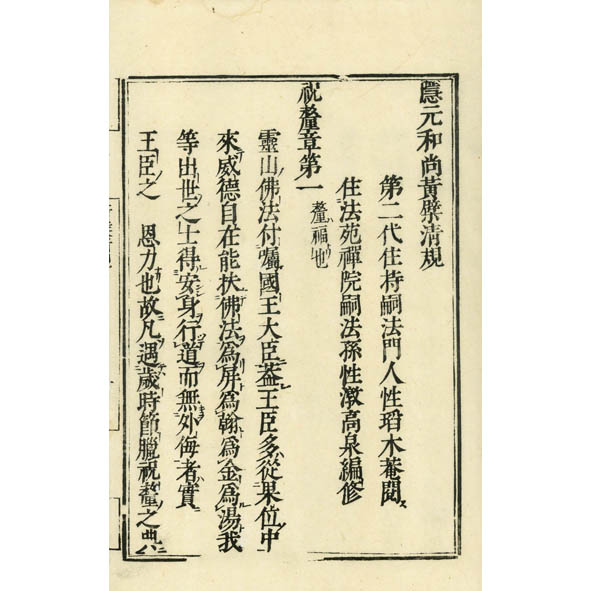 隱元和尚黃檗清規
第二代住持嗣法門人性瑫木菴閱
住法苑禪院嗣法孫性潡高泉編修
祝釐章第一 釐福也
靈山佛法付囑國王大臣葢王臣多從果位中
來威德自在能扶佛法爲屏爲翰爲金爲湯我
等出世之士得安身行道而無外侮者實
王臣之 恩力也故凡遇歲時節臘祝釐之典